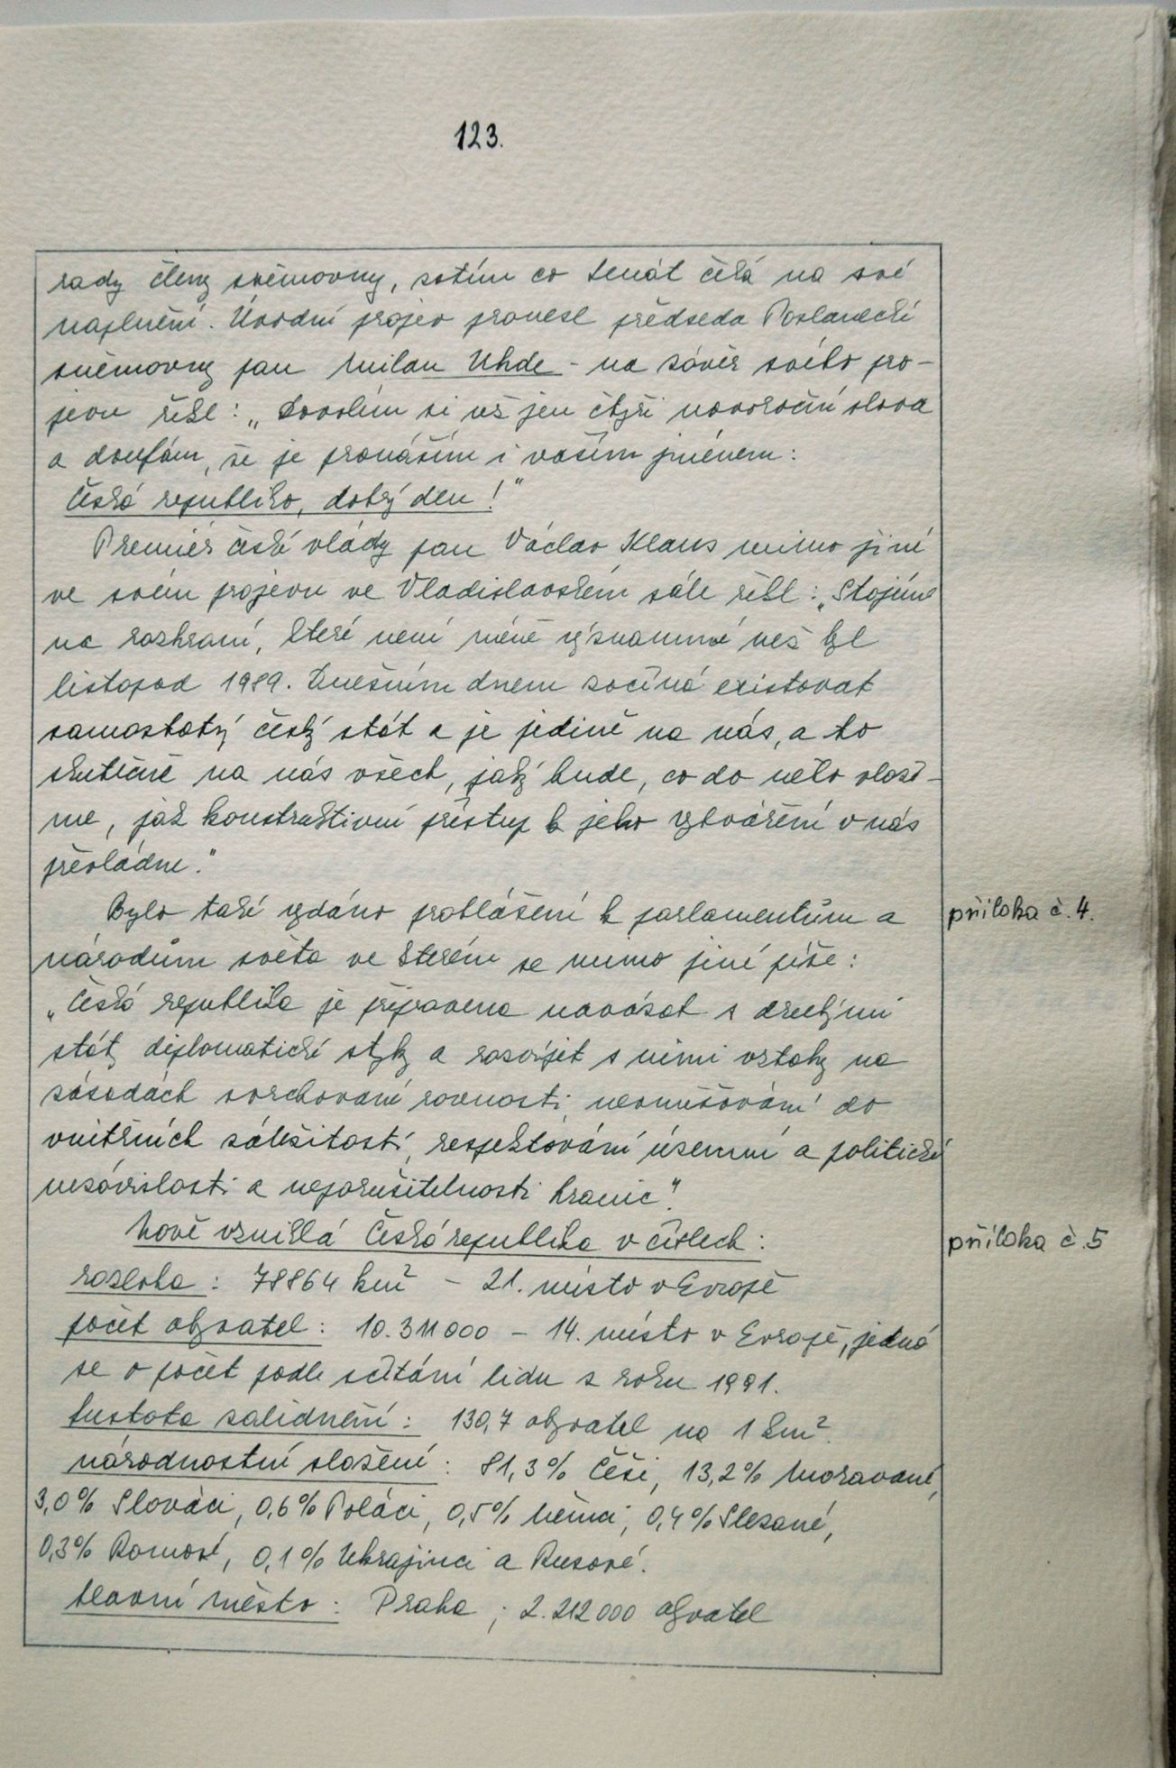 123.
rady členy sněmovny, zatím co senát čeká na své
naplnění. Úvodní projev pronesl předseda Poslanecké
sněmovny pan Milan Uhde - na závěr svého pro-
jevu řekl: „Dovolím si už jen čtyři novoroční slova
a doufám, že je pronáším i vaším jménem:
Česká republiko, dobrý den!"
Premiér české vlády pan Václav Klaus mimo jiné
ve svém projevu ve Vladislavském sále řekl: „Stojíme
na rozhraní, které není méně významné než byl
listopad 1989. Dnešním dnem začíná existovat
samostatný český stát a je jedině na nás, a to
skutečně na nás všech, jaký bude, co do něho vloží-
me, jak konstruktivní přístup k jeho vytváření v nás
převládne."
Bylo také vydáno prohlášení k parlamentům a
příloha č. 4.
národům světa ve kterém se mimo jiné píše:
„Česká republika je připravena navázat s druhými
státy diplomatické styky a rozvíjet s nimi vztahy na
zásadách svrchované rovnosti, nevměšování do
vnitřních záležitostí, respektování územní a politické
nezávislosti a neporušitelnosti hranic".
Nově vzniklá Česká republika v číslech:
příloha č. 5
rozloha: 78864 km² - 21. místo v Evropě
počet obyvatel: 10.311000 - 14. místo v Evropě, jedná
se o počet podle sčítání lidu z roku 1991.
hustota zalidnění: 130,7 obyvatel na 1 km².
národnostní složení: 81,3% Češi, 13,2% Moravané,
3,0% Slováci, 0,6% Poláci, 0,5% Němci, 0,4% Slezané,
0,3% Romové, 0,1% Ukrajinci a Rusové.
hlavní město: Praha; 2.212000 obyvatel